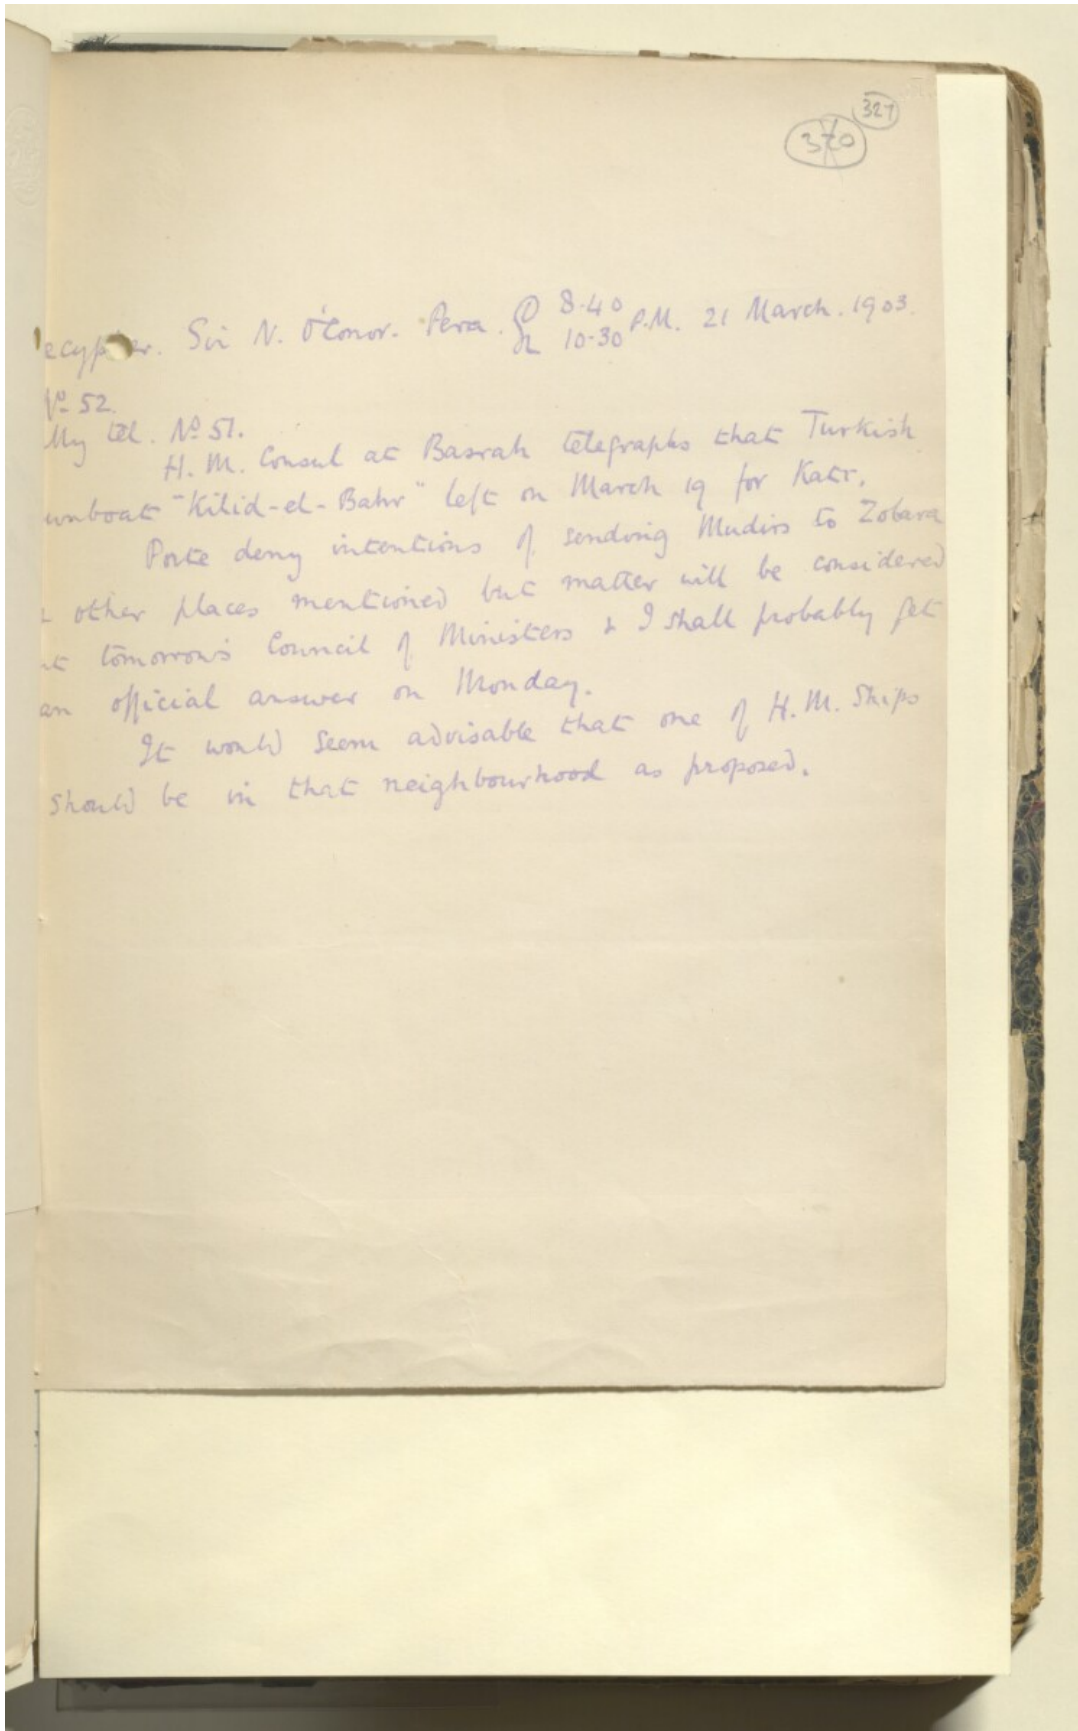 327
370
ecypher. Sir N. O'Conor. Pera. D 8-40 P.M. 21 March. 1903.
R 10-30
Nº 52.
My tel. Nº 51.
H. M. Consul at Basrah telegraphs that Turkish
unboat "Kilid-el-Bahr" left on March 19 for Katr.
Porte deny intentions of sending Mudirs to Zobara
& other places mentioned but matter will be considered
at tomorrow's Council of Ministers & I shall probably get
an official answer on Monday.
It would seem advisable that one of H. M. Ships
should be in that neighbourhood as proposed.